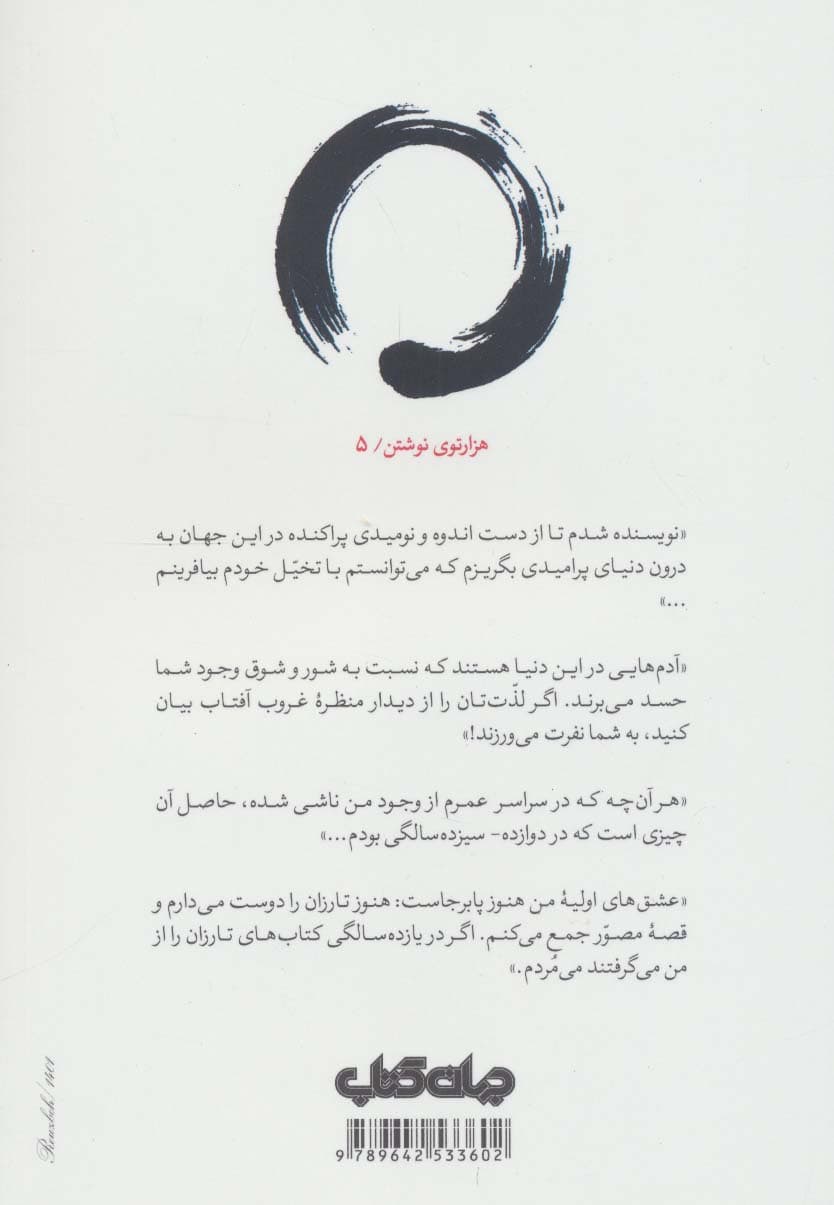 هزارتوی نوشتن/ ۵
«نویسنده شدم تا از دست اندوه و نومیدی پراکنده در این جهان به
درون دنیای پرامیدی بگریزم که می‌توانستم با تخیّل خودم بیافرینم
...»
«آدم‌هایی در این دنیا هستند که نسبت به شور و شوق وجود شما
حسد می‌برند. اگر لذّت‌تان را از دیدار منظرهٔ غروب آفتاب بیان
کنید، به شما نفرت می‌ورزند!»
«هر آن‌چه که در سراسر عمرم از وجود من ناشی شده، حاصل آن
چیزی است که در دوازده- سیزده‌سالگی بودم...»
«عشق‌های اولیهٔ من هنوز پابرجاست: هنوز تارزان را دوست می‌دارم و
قصهٔ مصوّر جمع می‌کنم. اگر در یازده‌سالگی کتاب‌های تارزان را از
من می‌گرفتند می‌مُردم.»
جهان کتاب
9 789642 533602
Rouzbeh/1401